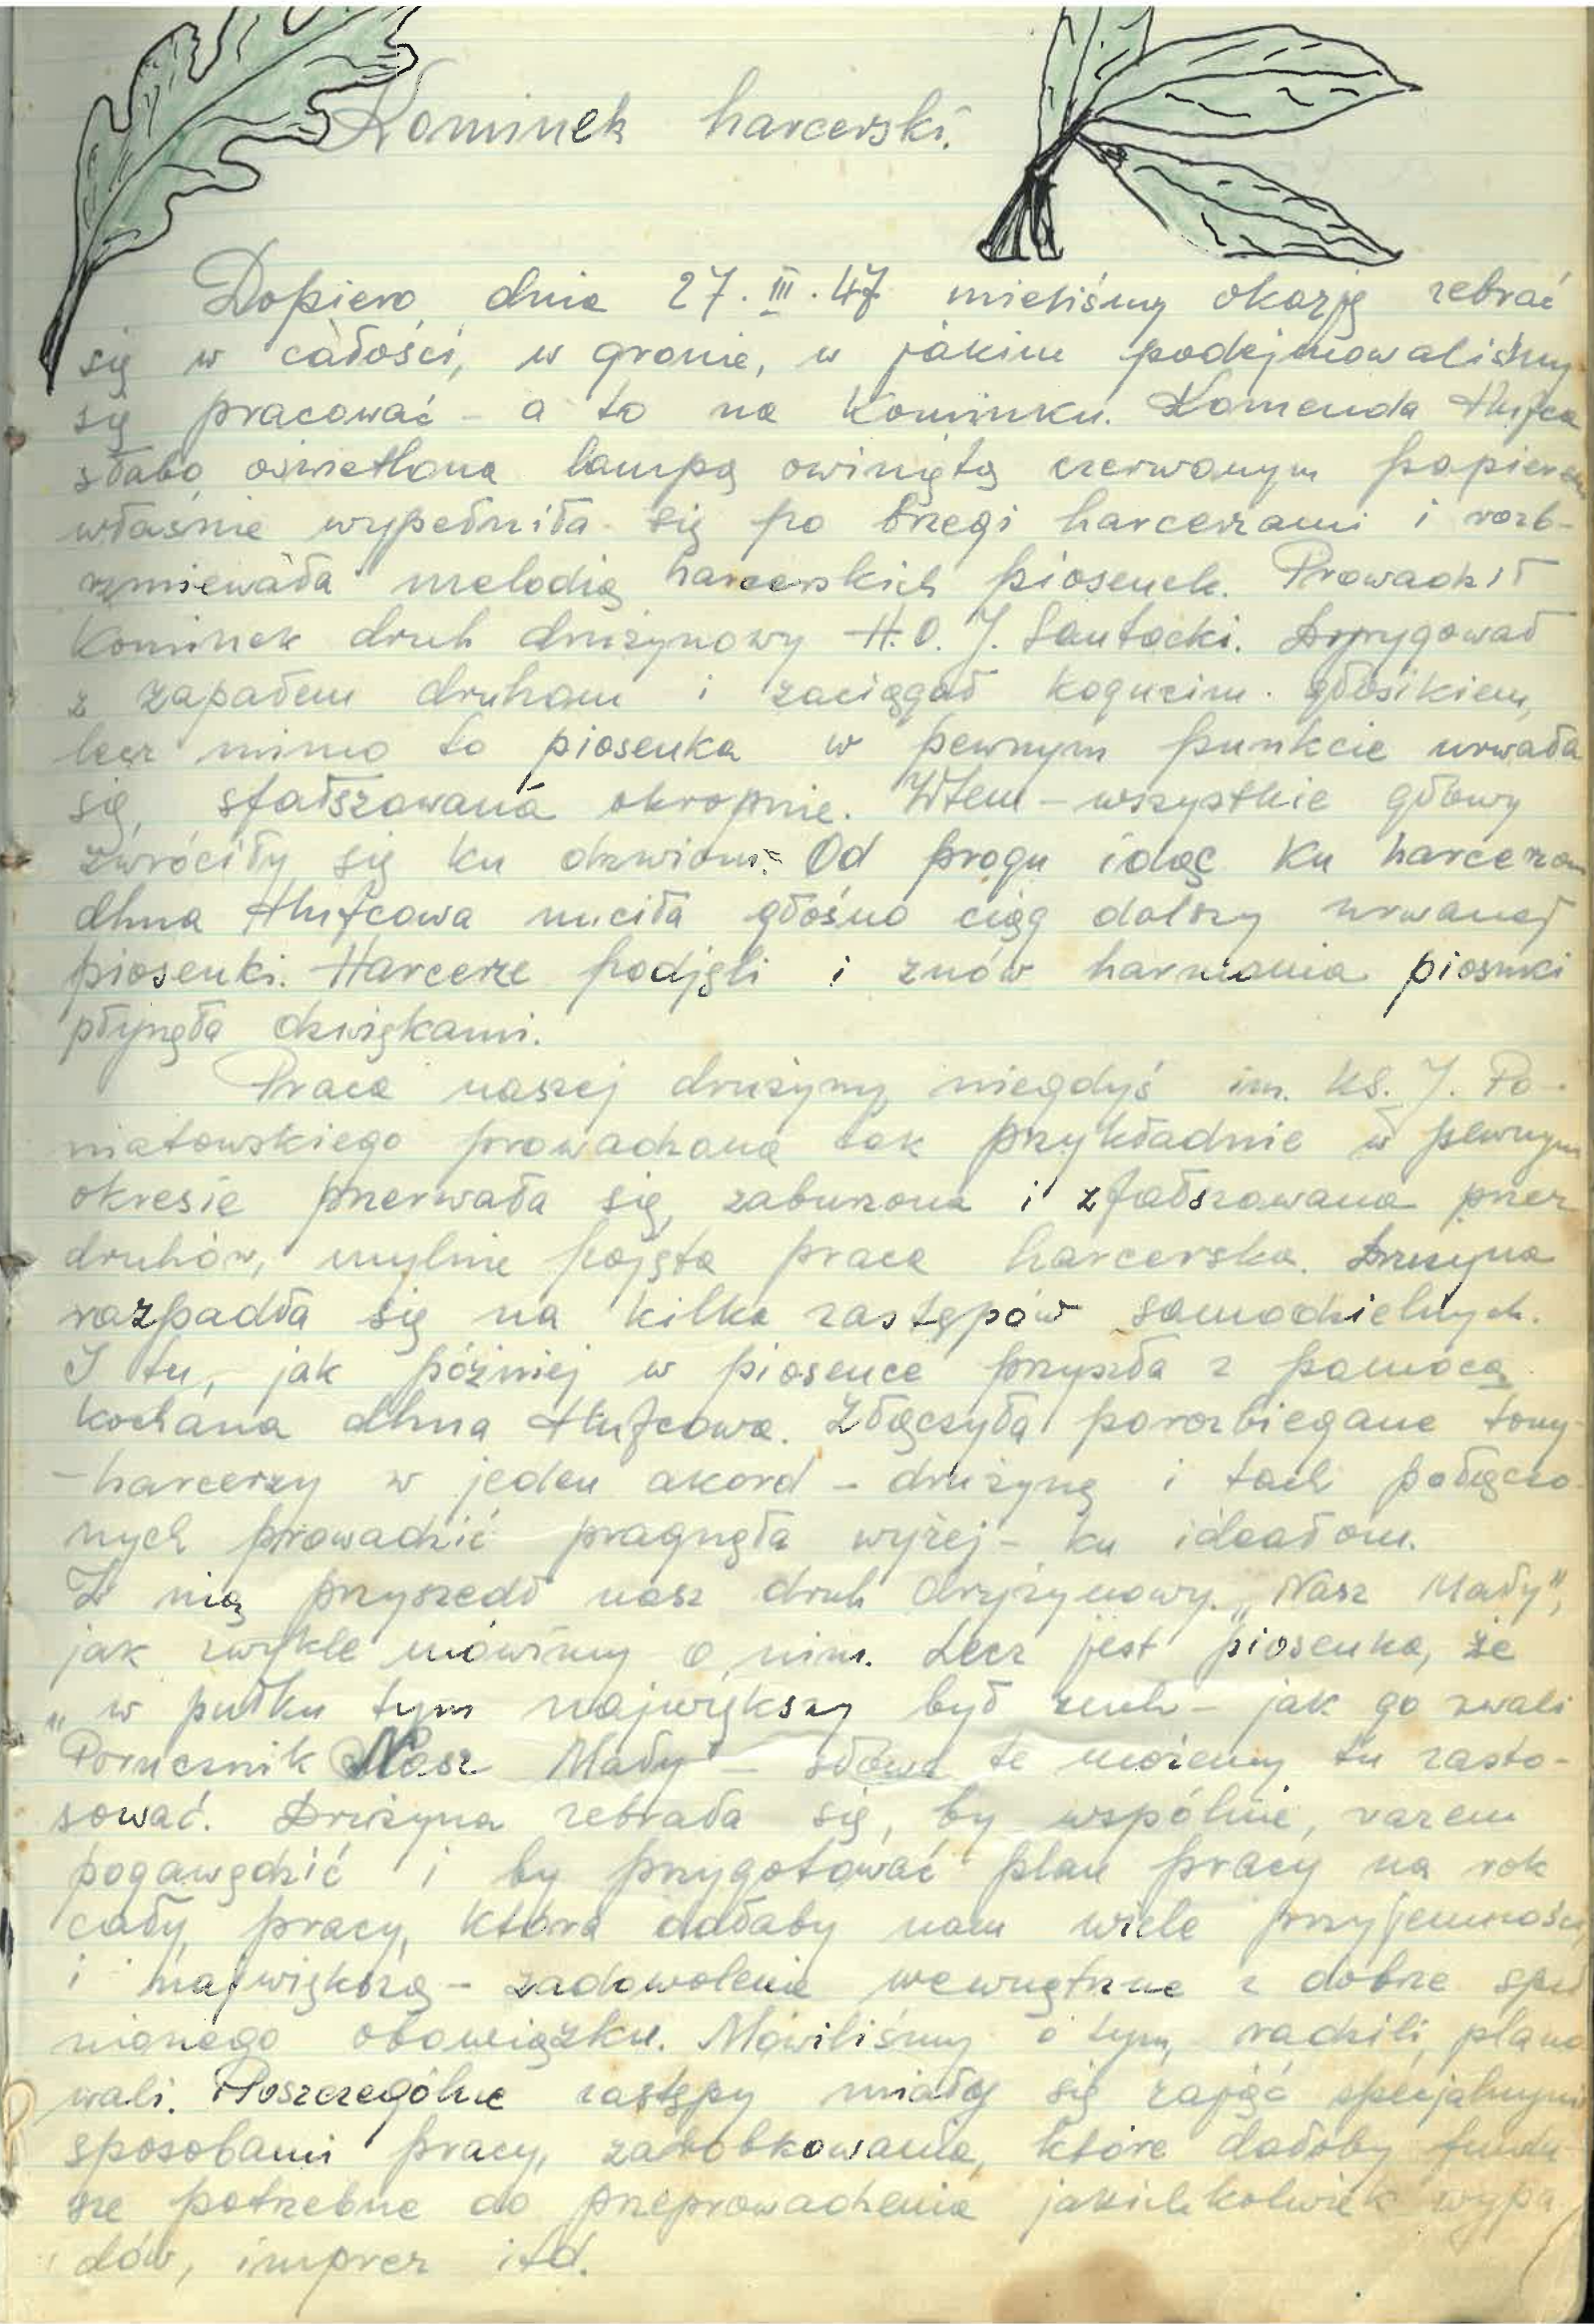 Kominek harcerski.
Dopiero dnia 27.III.47 mieliśmy okazję zebrać
się w całości, w gronie, w jakim podejmowaliśmy
się pracować - a to na Kominku. Komenda Hufca
słabo oświetlona lampą owiniętą czerwonym papierem
właśnie wypełniła się po brzegi harcerzami i rozb-
rzmiewała melodią harcerskich piosenek. Prowadził
Kominek druh drużynowy H.O. J. Santocki. Dyrygował
z zapałem druhom i zaciągał kogucim głosikiem,
lecz mimo to piosenka w pewnym punkcie urwała
się, sfałszowana okropnie. Wtem - wszystkie głowy
zwróciły się ku drzwiom. Od progu idąc ku harcerzom
dhna Hufcowa nuciła głośno ciąg dalszy urwanej
piosenki. Harcerze podjęli i znów harmonia piosnki
płynęła dźwiękami.
Praca naszej drużyny niegdyś im. ks. J. Po-
niatowskiego prowadzona tak przykładnie w pewnym
okresie przerwała się, zaburzona i zfałszowana przez
druhów, mylnie pojęta praca harcerska. Drużyna
rozpadła się na kilka zastępów samodzielnych.
I tu, jak później w piosence przyszła z pomocą
kochana dhna Hufcowa. Złączyła porozbiegane tony-
-harcerzy w jeden akord - drużynę i tach połączo-
nych prowadzić pragnęła wyżej - ku ideałom.
Z nią przyszedł nasz druh drużynowy. „Nasz Mały",
jak zwykle mówimy o nim. Lecz jest piosenka, że
„w pułku tym największy był zuch - jak go zwali
Porucznik Nasz Mały" - słowa te możemy tu zasto-
sować. Drużyna zebrała się, by wspólnie, razem
pogawędzić i by przygotować plan pracy na rok
cały, pracy, która dałaby nam wiele przyjemności
i największą - zadowolenie wewnętrzne z dobrze speł
nionego obowiązku. Mówiliśmy o tym, radzili, plano
wali. Poszczególne zastępy miały się zająć specjalnymi
sposobami pracy, zarobkowania, które dałoby fundu-
sze potrzebne do przeprowadzenia jakichkolwiek wypa
dów, imprez itd.